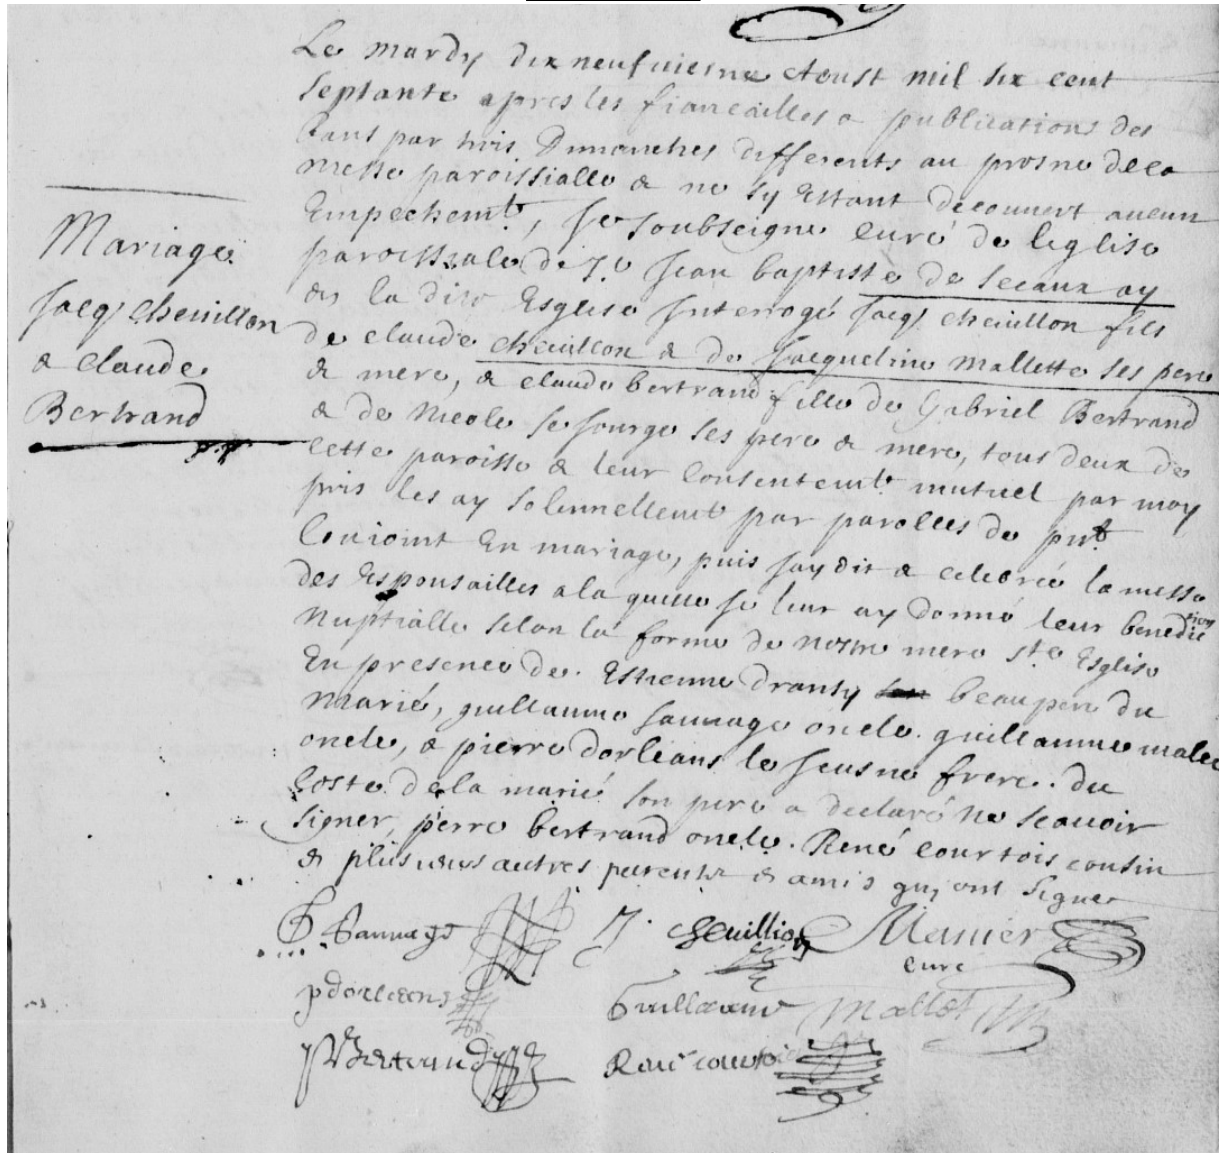 Mariage
Jacq chevillon
& claude
Bertrand
Le mardy dix neufuiesme Aoust mil six cent
septante apres les fiancailles & publications des
bans par trois Dimanches differents au prosne de la
messe paroissialle & ne sy Estant decouuert aucun
Empechemt, je soubseigne curé de leglise
paroissiale de St Jean baptiste de Sceaux ay
en la dite Esglise Interrogé Jacq chevillon fils
de claude chevillon & de Jacqueline mallette ses pere
& mere, & claude bertrand fille de Gabriel Bertrand
& de Nicole le sourge ses pere & mere, tous deux de
cette paroisse & leur consentemt mutuel par moy
pris les ay solennellemt par parolles de pnt
Conioint En mariage, puis jay dit & celebré la messe
des Espousailles a la quelle je leur ay donné leur benediction
Nuptialle selon la forme de nostre mere ste Esglise
En presence de Estienne dransy beaupere du
marié, guillaume sauuage oncle. guillaume malet
oncle, & pierre dorleans le jeusne frere. du
costé de la marié son pere a declaré ne scauoir
signer, pierre bertrand oncle. René courtois cousin
& plusieurs autres parents & amis qui ont signer
G Sauuage J. cheuillion Manier
curé
p dorleans Guillaume Mallet
P Bertrand René courtois